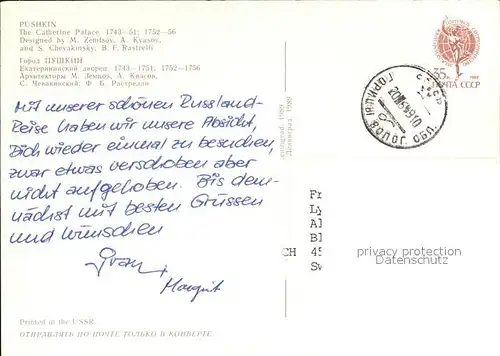 PUSHKIN
The Catherine Palace. 1743—51; 1752—56
Designed by M. Zemtsov, A. Kvasov,
and S. Chevakinsky; B. F. Rastrelli
Город ПУШКИН
Екатерининский дворец. 1743—1751; 1752—1756
Архитекторы М. Земцов, А. Квасов,
С. Чевакинский; Ф. Б. Растрелли
35к
1988
ПОЧТА СССР
СССР
ГОРИЦЫ
ВОЛОГ. ОБЛ.
Mit unserer schönen Russland-
Reise haben wir unsere Absicht,
Dich wieder einmal zu besuchen,
zwar etwas verschoben aber
nicht aufgehoben. Bis dem-
nächst mit besten Grüssen
und Wünschen
Margrit
Leningrad 1989
Ленинград 1989
Fr
Ly
Al
Bl
CH 45
Sw
privacy protection
Datenschutz
Printed in the USSR
ОТПРАВЛЯТЬ ПО ПОЧТЕ ТОЛЬКО В КОНВЕРТЕ